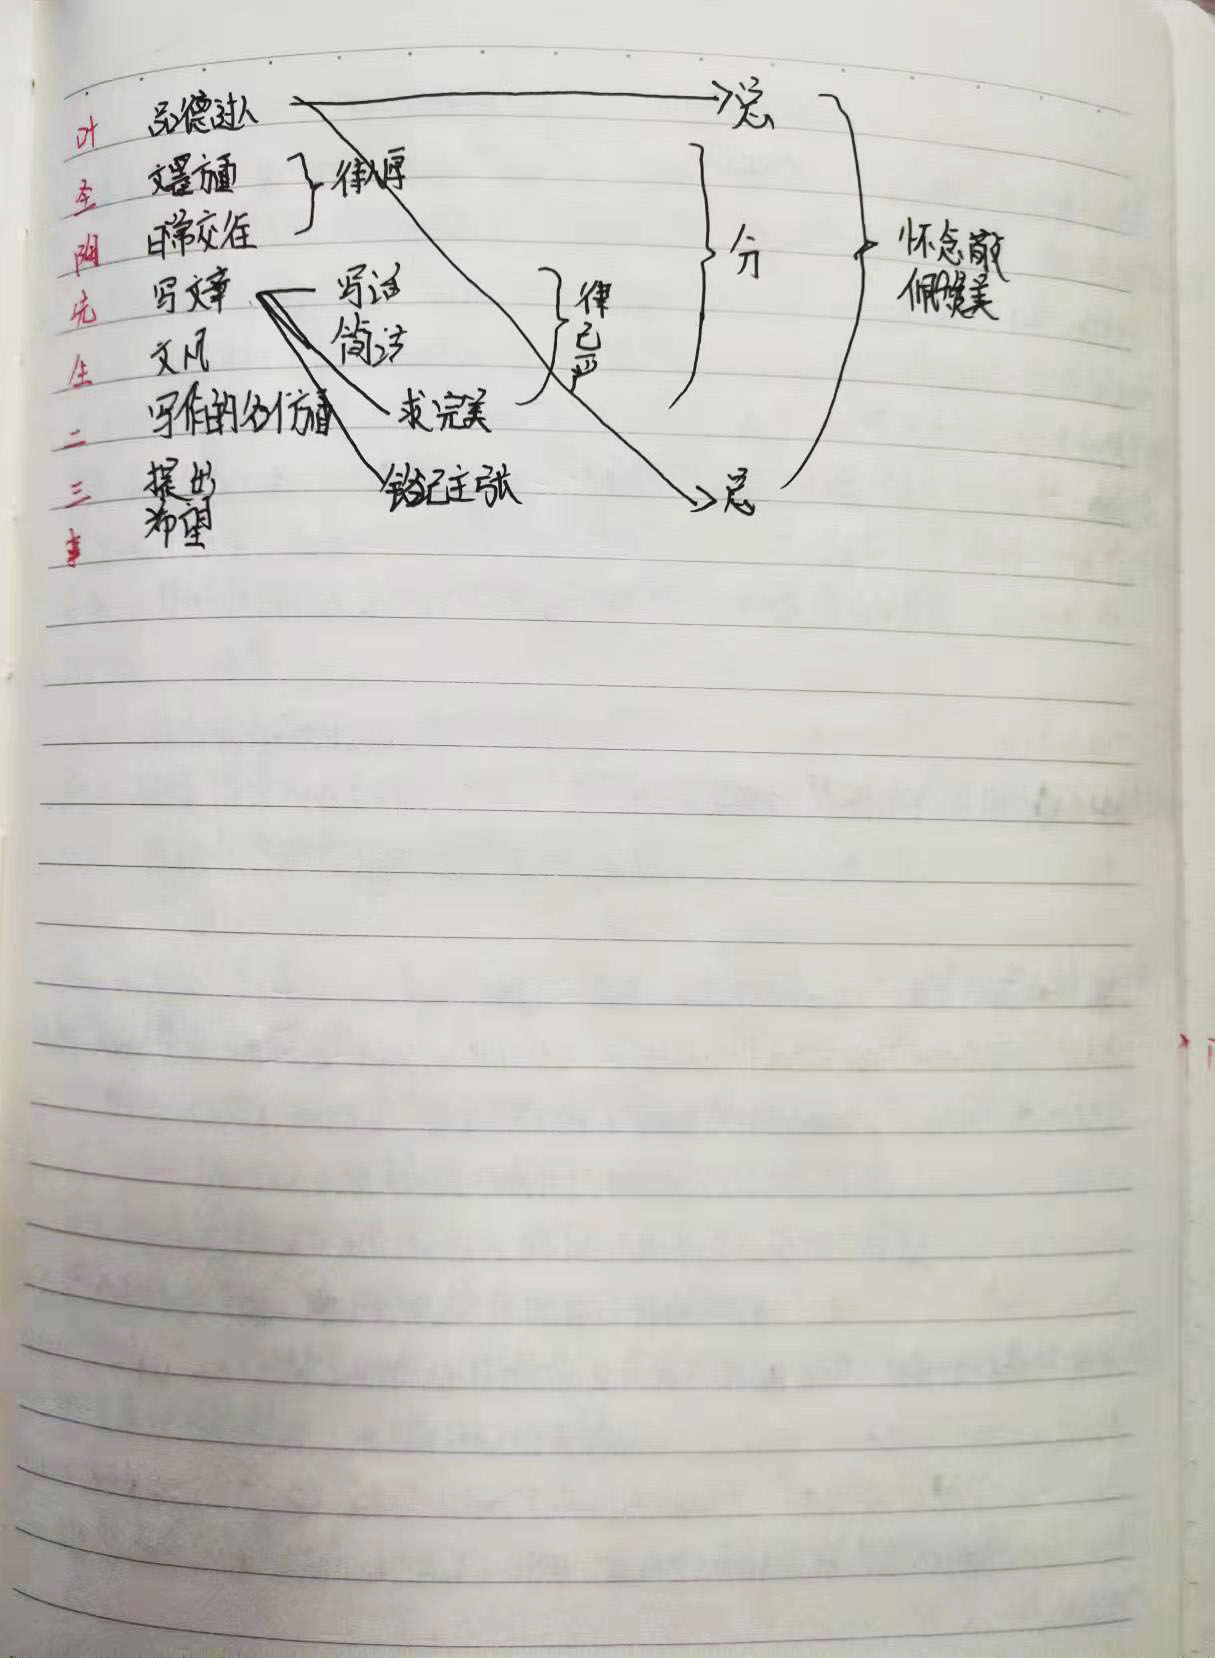 叶圣陶先生二三事
品德过人
总
文墨方面
日常交往
待人厚
写文章
写话
文风
简洁
写作的各个方面
求完美
律己严
分
提出
希望
总
怀念敬
佩赞美